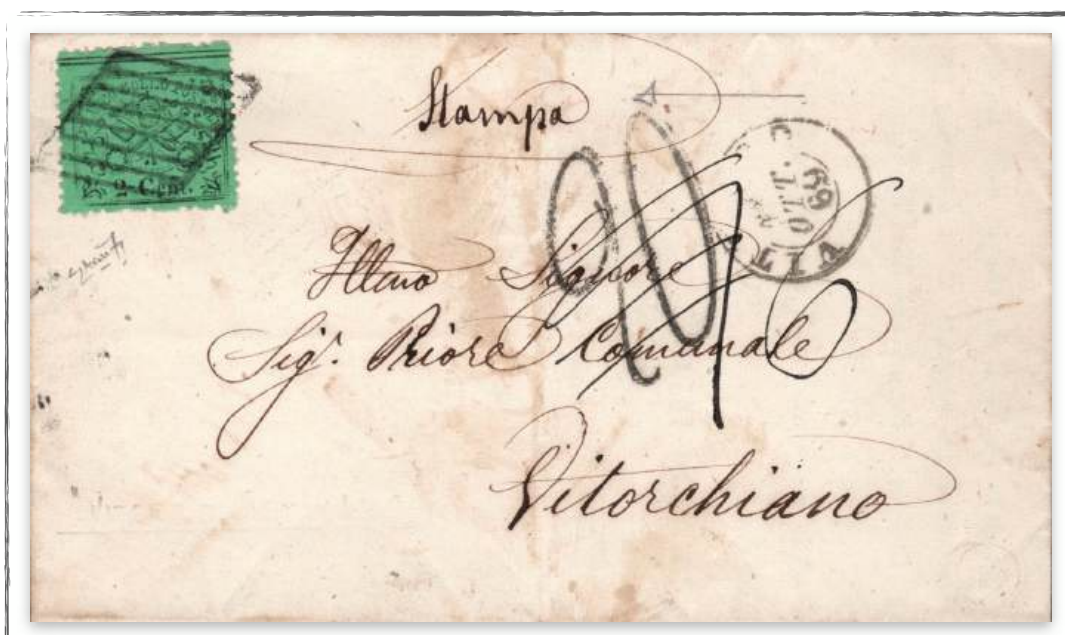 2 Cent.
Stampa
OTT. 69
Illmo Signore
Sigr. Priore Comunale
Vitorchiano